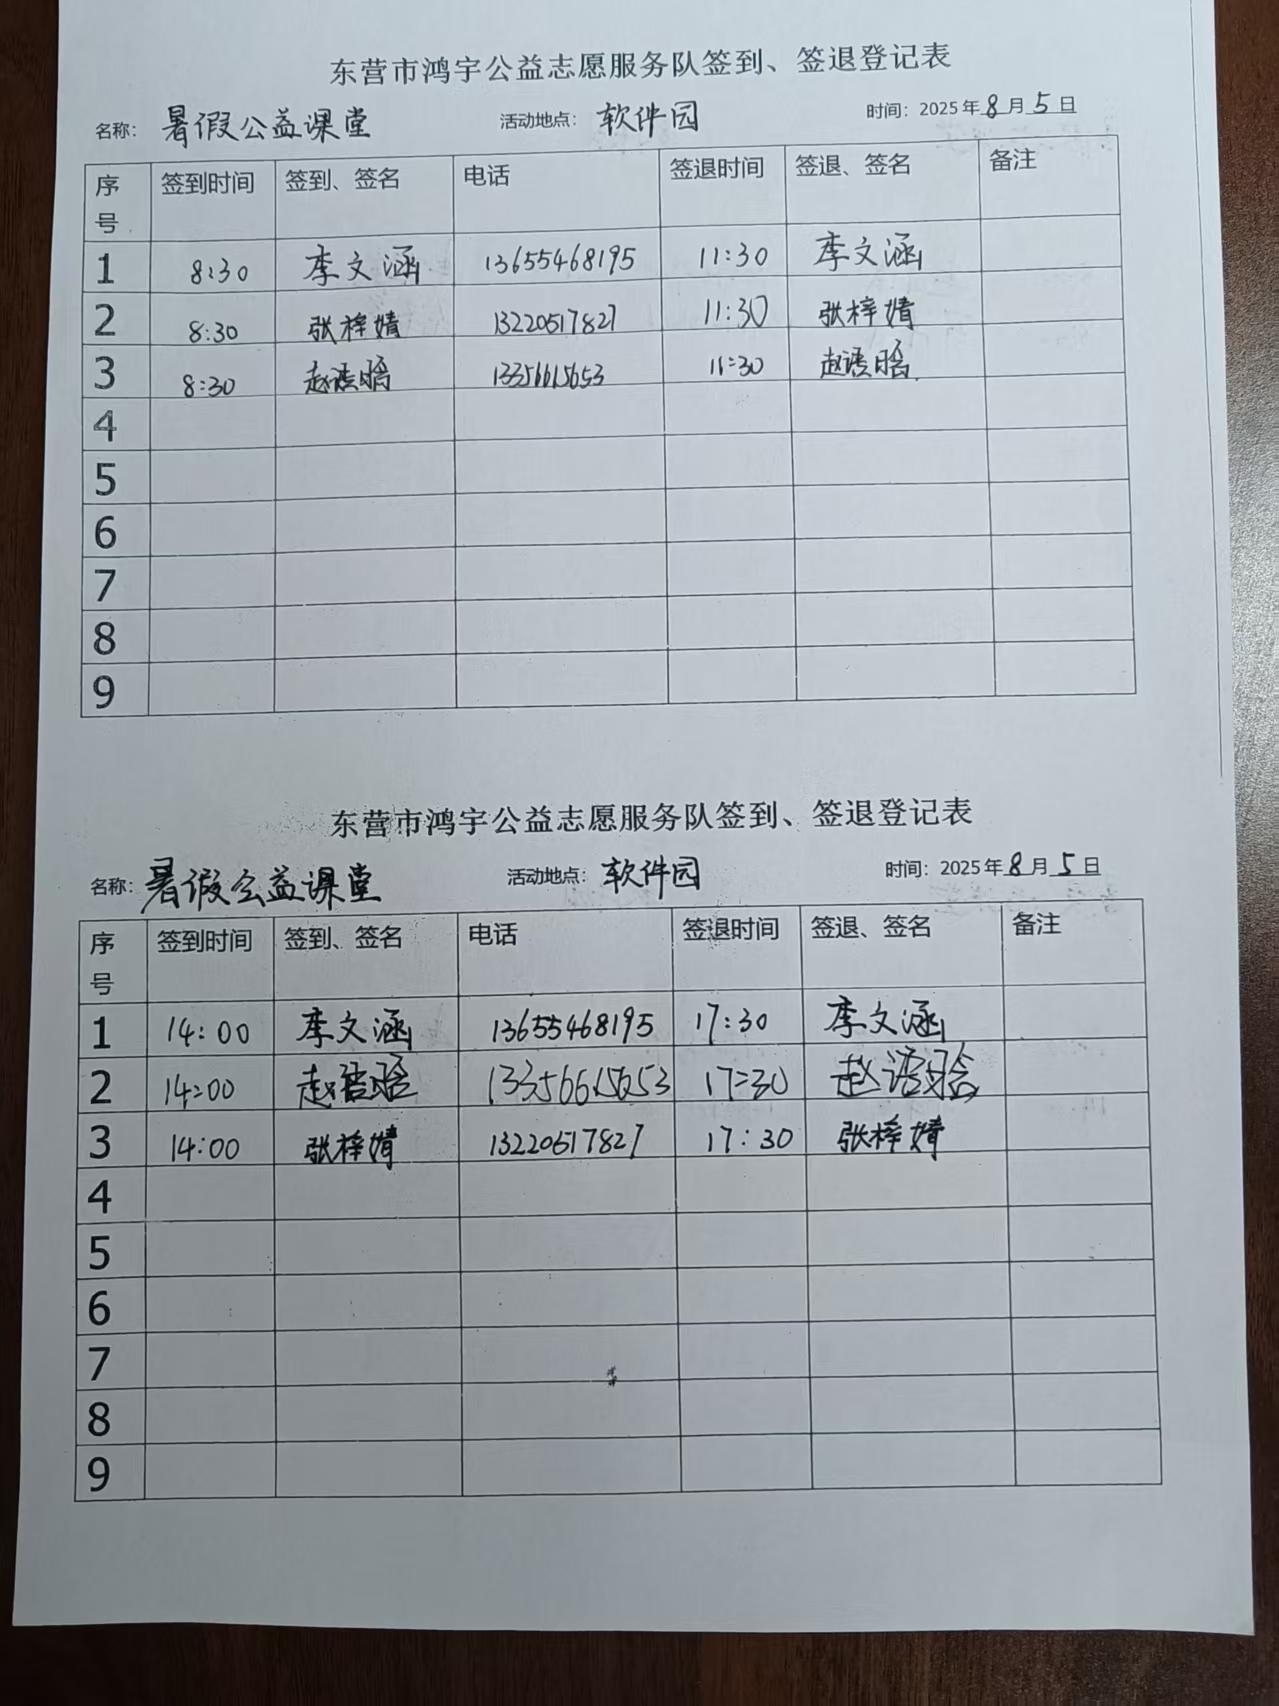 东营市鸿宇公益志愿服务队签到、签退登记表
名称： 暑假公益课堂 活动地点： 软件园 时间：2025年8月5日
序号 签到时间 签到、签名 电话 签退时间 签退、签名 备注
1 8:30 李文涵 13655468195 11:30 李文涵
2 8:30 张梓婧 13220517827 11:30 张梓婧
3 8:30 赵语晗 13356615653 11:30 赵语晗
4
5
6
7
8
9
东营市鸿宇公益志愿服务队签到、签退登记表
名称： 暑假公益课堂 活动地点： 软件园 时间：2025年8月5日
序号 签到时间 签到、签名 电话 签退时间 签退、签名 备注
1 14:00 李文涵 13655468195 17:30 李文涵
2 14:00 赵语晗 13356615653 17:30 赵语晗
3 14:00 张梓婧 13220517827 17:30 张梓婧
4
5
6
7
8
9